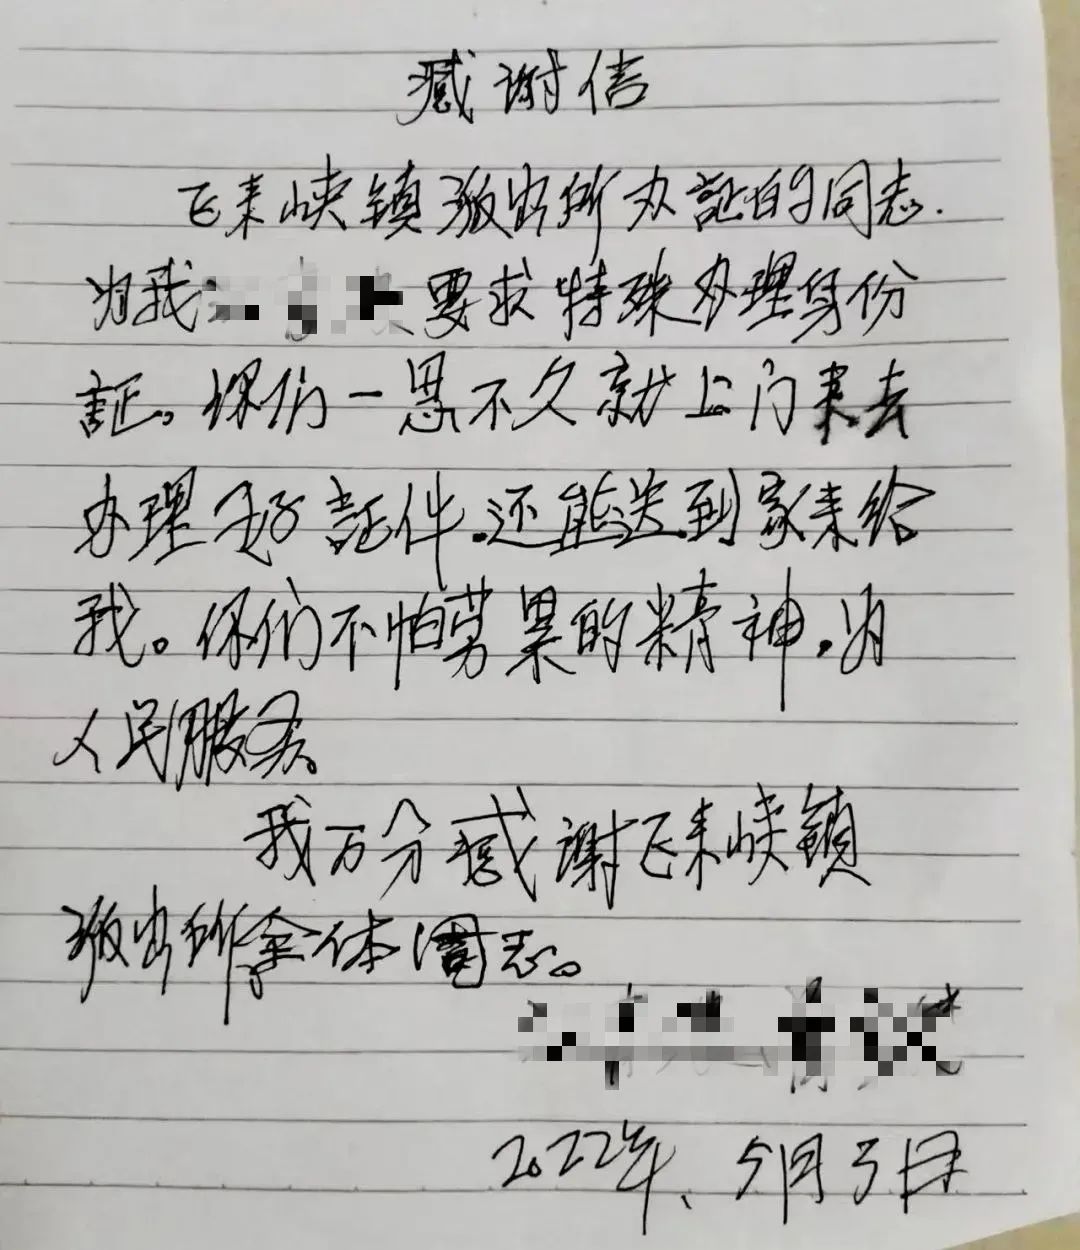 感谢信
飞来峡镇派出所办証的同志.
为我要求特殊办理身份
証。你们一思不久就上门来去
办理好証件.还能送到家来给
我。你们不怕劳累的精神.为
人民服务。
我万分感谢飞来峡镇
派出所全体同志。
2022年、5月5日